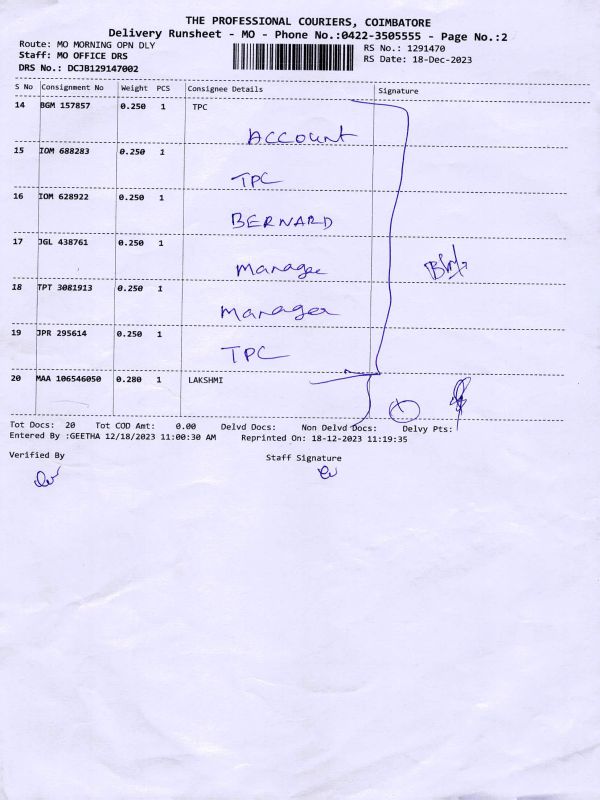 THE PROFESSIONAL COURIERS, COIMBATORE
Delivery Runsheet - MO - Phone No.:0422-3505555 - Page No.:2
Route: MO MORNING OPN DLY
RS No.: 1291470
Staff: MO OFFICE DRS
RS Date: 18-Dec-2023
DRS No.: DCJB129147002
S No Consignment No Weight PCS Consignee Details Signature
14 BGM 157857 0.250 1 TPC
ACCOUNT
15 IOM 688283 0.250 1
TPC
16 IOM 628922 0.250 1
BERNARD
17 JGL 438761 0.250 1
Manager
18 TPT 3081913 0.250 1
Manager
19 JPR 295614 0.250 1
TPC
20 MAA 106546050 0.280 1 LAKSHMI
Tot Docs: 20 Tot COD Amt: 0.00 Delvd Docs: Non Delvd Docs: Delvy Pts:
Entered By :GEETHA 12/18/2023 11:00:30 AM Reprinted On: 18-12-2023 11:19:35
Verified By Staff Signature